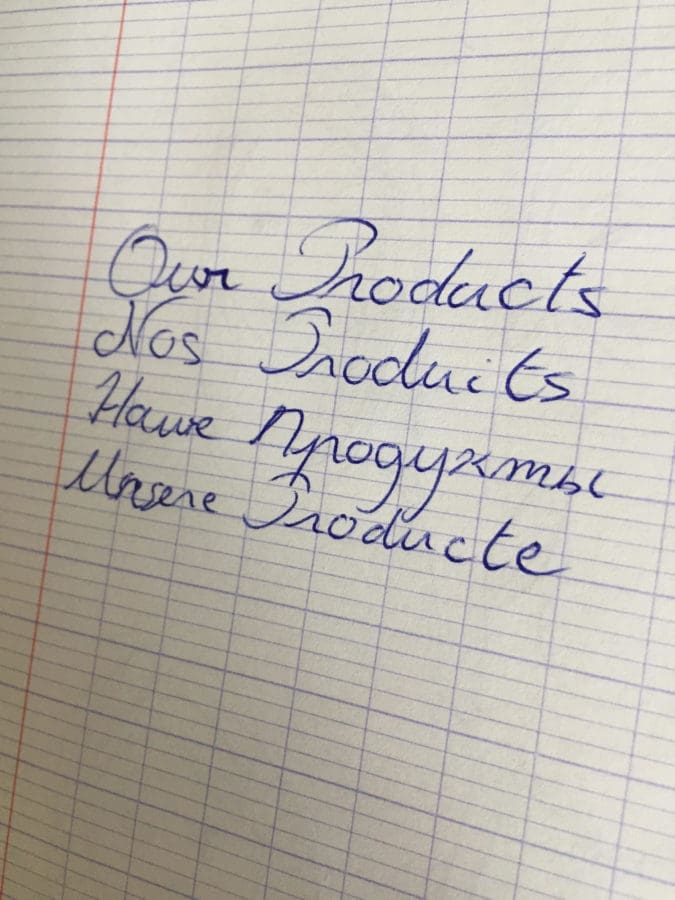 Our Products
Nos Produits
Наше Продукты
Unsere Producte